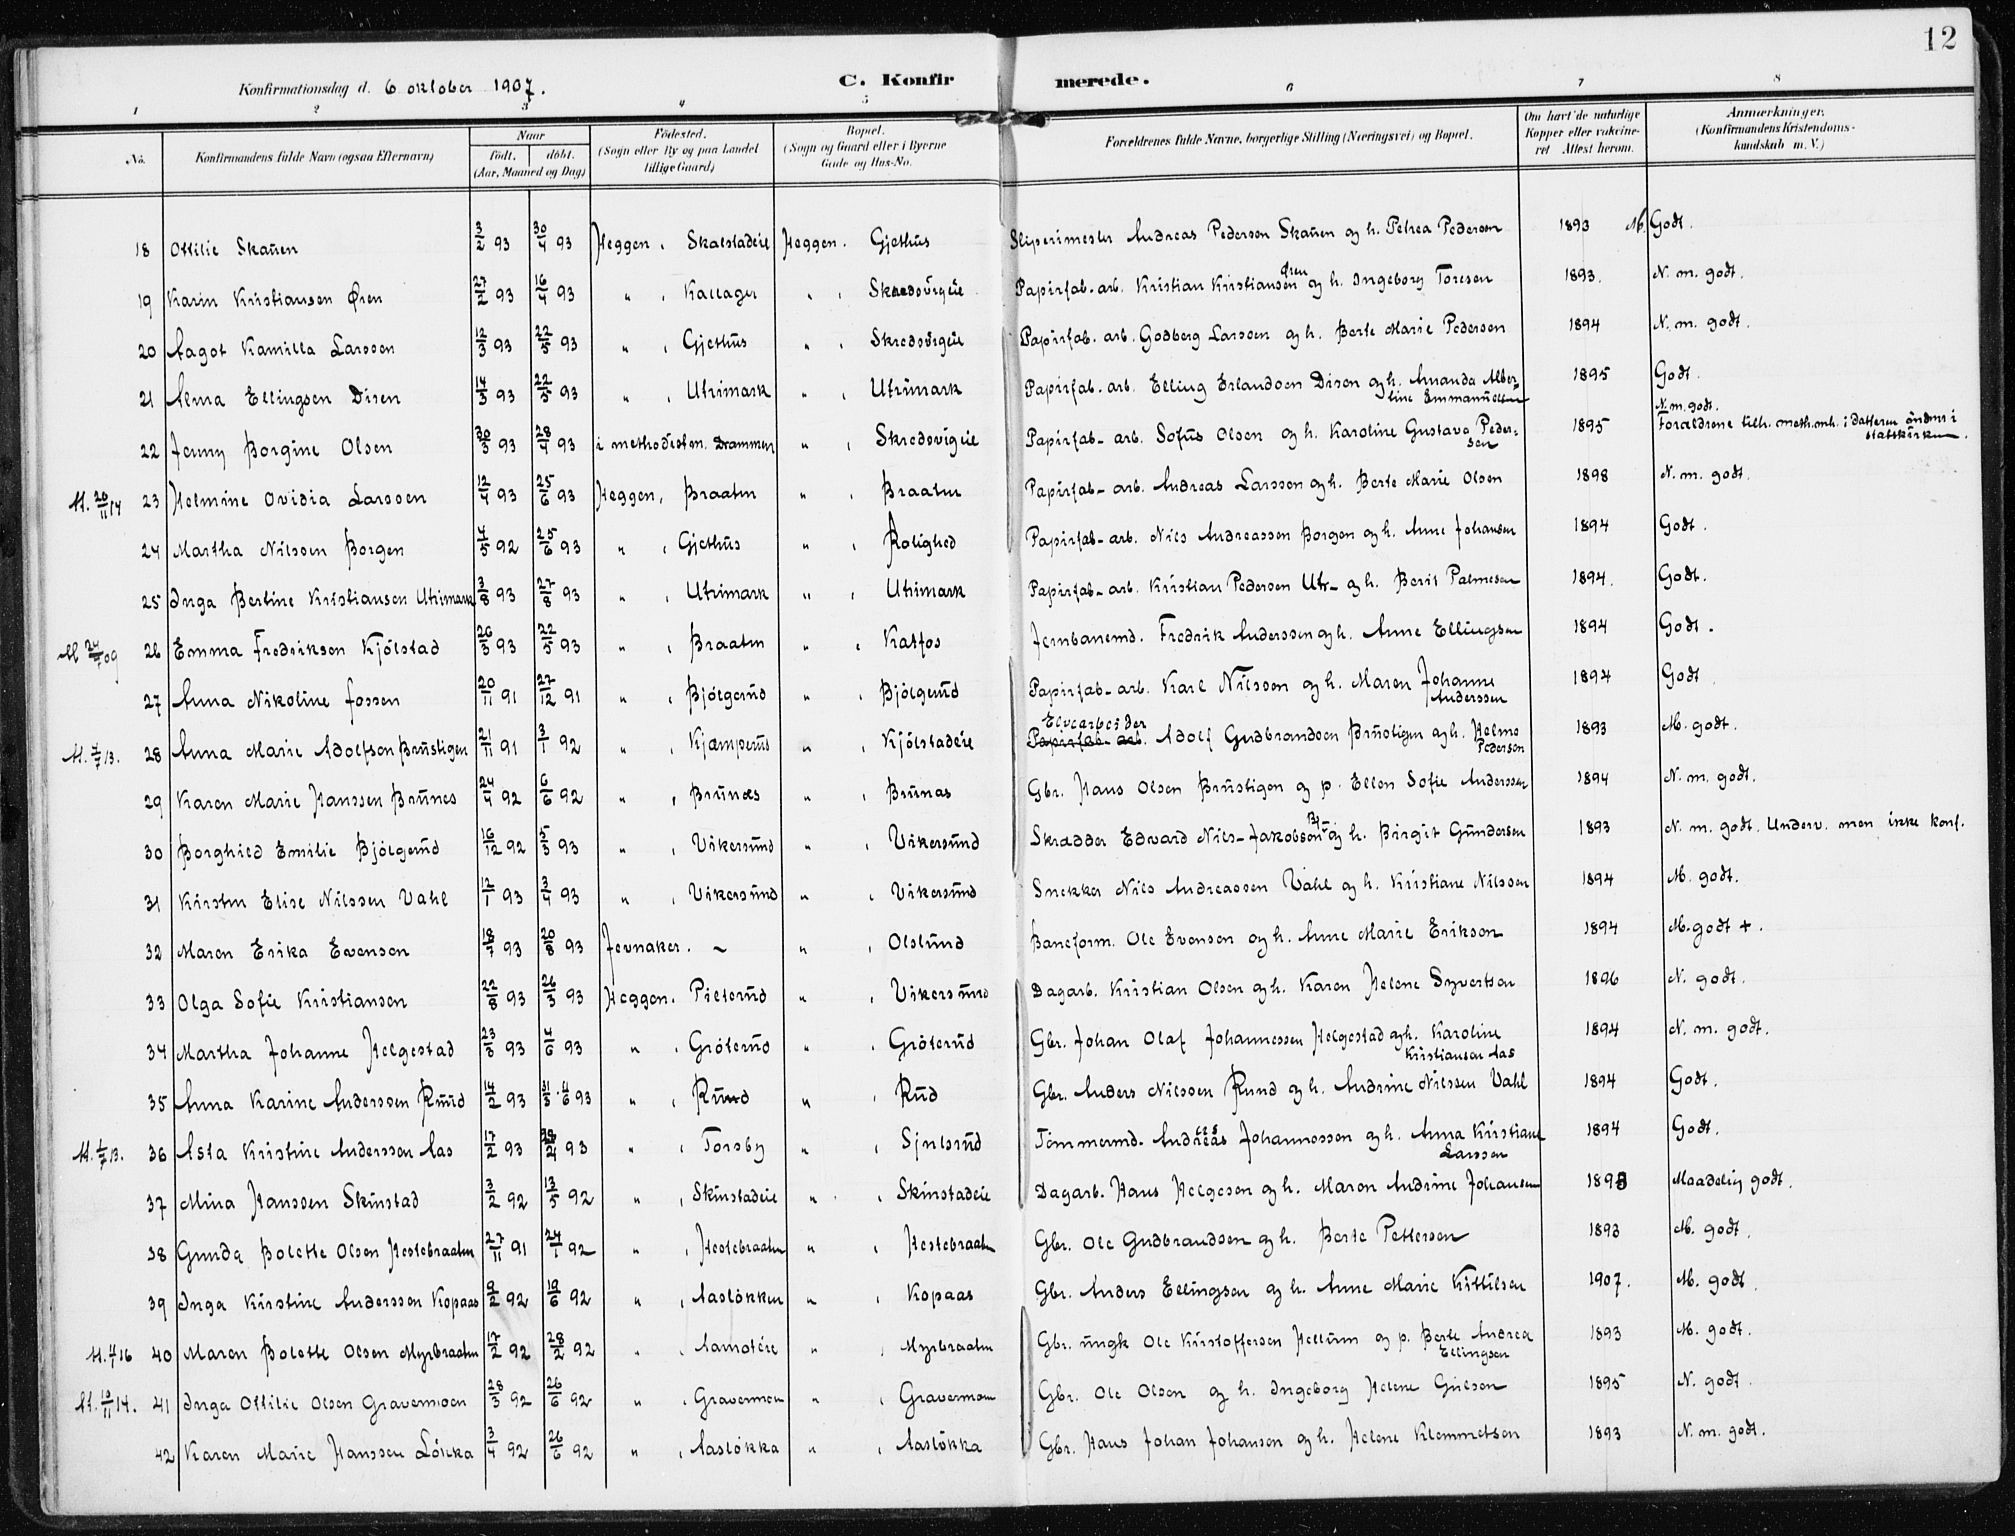 12
Konfirmationsdag d. 6 oktober 1907.
C. Konfirmerede.
1 2 3 4 5 6 7 8
No. Konfirmandens fulde Navn (ogsaa Efternavn) Naar født. døbt. (Aar, Maaned og Dag) Fødested. (Sogn eller By og paa Landet tillige Gaard) Bopæl. (Sogn og Gaard eller i Byerne Gade og Hus-No. Forældrenes fulde Navne, borgerlige Stilling (Næringsvei) og Bopæl. Om havt de naturlige Kopper eller vakcineret Attest herom. Anmærkninger. (Konfirmandens Kristendomskundskab m. V.)
18 Ottilie Skauen 3/2 93 30/4 93 Heggen, Skalstadeie Heggen. Gjethus Sliperimester Andreas Pedersen Skauen og h. Petrea Pedersen 1893 M. Godt.
19 Karin Kristiansen Øren 27/2 93 16/4 93 " , Kallager " , Skredsvigeie Papirfab. arb. Kristian Kristiansen Øren og h. Ingeborg Toresen 1893. N. m. godt.
20 Aagot Kamilla Larssen 12/3 93 22/5 93 " , Gjethus " , Skredsvigeie Papirfab. arb. Godberg Larssen og h. Berte Marie Pedersen 1894 N. m. godt.
21 Alma Ellingsen Disen 14/3 93 22/5 93 " , Utrimark " , Utrimark Papirfab. arb. Elling Erlandsen Disen og h. Amanda Albertine Emmanuelsen 1895 Godt.
22 Jenny Borgine Olsen 30/3 93 28/4 93 i methodisten. Drammen " , Skredsvigeie Papirfab- arb. Sofus Olsen og h. Karoline Gustava Pedersen 1895 N. m. godt. Forældrene tilh. meth.mh. i datteren ønskes i statskirken.
M. 20/11 14 23 Helmine Ovidia Larssen 12/4 93 25/6 93 Heggen, Braaten " , Braaten Papirfab- arb. Andreas Larssen og h. Berte Marie Olsen 1898 N. m. godt.
24 Martha Nilssen Borgen 4/5 92 25/6 93 " , Gjethus " , Rolighed Papirfab- arb. Nils Andreassen Borgen og h. Anne Johansen 1894 Godt.
25 Inga Bertine Kristiansen Utrimark 3/8 93 27/8 93 " , Utrimark " , Utrimark Papirfab- arb. Kristian Pedersen Utr- og h. Berit Palmesen 1894. Godt.
M 24/7 09 26 Emma Fredriksen Kjølstad 26/3 93 22/5 93 " , Braaten " , Katfos Jernbanemd. Fredrik Anderssen og h. Anne Ellingsen 1894 Godt.
27 Anna Nikoline Fossen 20/11 91 27/12 91 " , Bjølgerud " , Bjølgerud Papirfab- arb. Karl Nilssen og h. Maren Johanne Anderssen 1894 Godt.
M. 4/7 13. 28 Anna Marie Adolfsen Brustigen 21/11 91 3/1 92 " , Kjæmperud " , Kjølstadeie Elvearbeider Papirfab. arb. Adolf Gudbrandsen Brustigen og h. Helma Pedersen 1893 M. godt.
29 Karen Marie Hanssen Brunes 24/4 92 6/6 92 " , Brunæs " , Brunæs Gbr. Hans Olsen Brustigen og p. Ellen Sofie Anderssen 1894 N. m. godt.
30 Borghild Emilie Bjølgerud 16/12 92 5/3 93 " , Vikersund " , Vikersund Skrædder Edvard Nils- Jakobsen Bj- og h. Birgit Gundersen 1893 N. m. godt. Underv. men ikke konf.
31 Kirsten Elise Nilssen Vahl 12/1 93 3/4 93 " , Vikersund " , Vikersund Snekker Nils Andreassen Vahl og h. Kristiane Nilssen 1894 M. godt.
32 Maren Erika Evensen 18/7 93 20/8 93 Jevnaker. - " , Olslund Baneform. Ole Evensen og h. Anne Marie Eriksen 1894 M. godt +.
33 Olga Sofie Kristiansen 22/8 93 26/3 93 Heggen. Pieterud " , Vikersund Dagarb. Kristian Olsen og h. Karen Helene Syvertsen 1896 N. godt.
34 Martha Johanne Helgestad 23/3 93 4/6 93 " , Grøterud " , Grøterud Gbr. Johan Olaf Johannessen Helgestad og h. Karoline Kristiansen Aas 1894 N. m. godt.
35 Anna Karine Anderssen Ruud 14/2 93 31/3 . 4/6 93 " , Ruud " , Rud Gbr. Anders Nilssen Ruud og h. Andrine Nilssen Vahl 1894 Godt.
M. 4/7 13. 36 Asta Kristine Anderssen Aas 17/2 93 93 " , Torsby " , Sjulsrud Tømmermd. Andreas Johannessen og h. Anna Kristiane Larssen 1894 Godt.
37 Mina Hanssen Skinstad 3/2 92 13/5 92 " , Skinstadeie " , Skinstadeie Dagarb. Hans Helgesen og h. Maren Andrine Johansen 1893 Maadelig godt.
38 Gunda Bolette Olsen Hestebraaten 27/11 91 24/1 92 " , Hestebraaten " , Hestebraaten Gbr. Ole Gudbrandsen og h. Berte Pettersen 1893 M. godt.
39 Inga Kirstine Anderssen Kopaas 9/2 92 19/6 92 " , Aasløkken " , Kopaas Gbr. Anders Ellingsen og h. Anne Marie Kittilsen 1907. M. godt.
M. 4/7 16 40 Maren Bolette Olsen Myrbraaten 17/2 92 28/2 92 " , Aamoteie " , Myrbraaten Gbr. ungk Ole Kristoffersen Hellum og p. Berte Andrea Ellingsen 1893 M. godt.
M. 10/11 14. 41 Inga Ottilie Olsen Gravermoen 28/3 92 26/6 92 " , Gravermoen " , Gravermoen Gbr. Ole Olsen og h. Ingeborg Helene Gulsen 1895 N. godt.
42 Karen Marie Hanssen Løkka 3/4 92 26/6 92 " , Aasløkka " , Aasløkka Gbr. Hans Johan Johansen og h. Helene Klemmetsen 1893 N. m. godt.